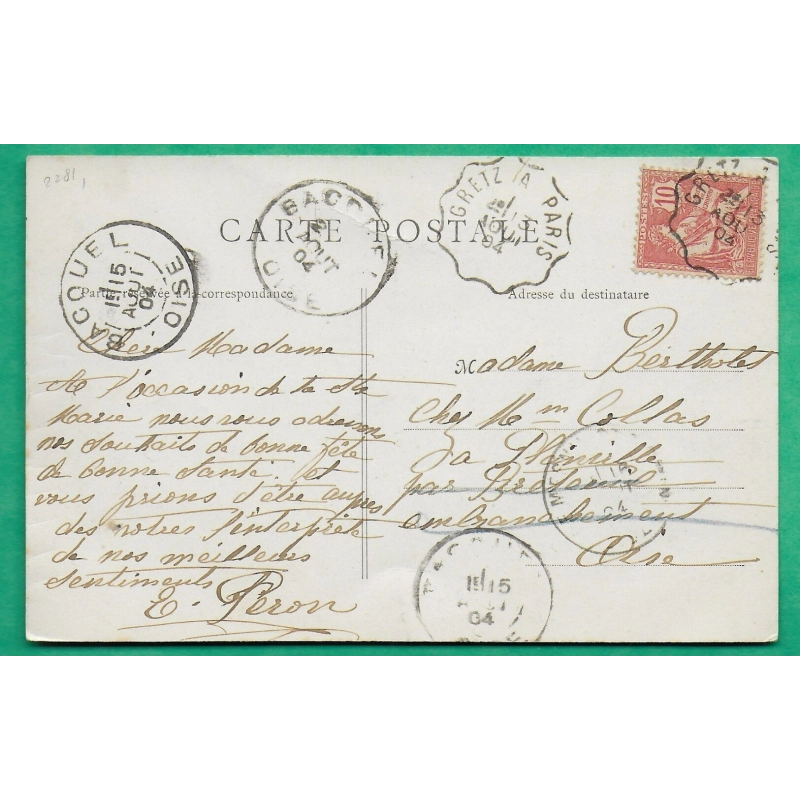 2281
BACOUEL
15
AOUT
04
OISE
BACOUEL
AOUT
04
OISE
GRETZ A PARIS
AOUT
04
10
POSTES
GRETZ
AOU
04
CARTE POSTALE
Partie réservée à la correspondance
Adresse du destinataire
Chère Madame
A l'occasion de la Ste
Marie nous vous adressons
nos souhaits de bonne fête
de bonne santé et
vous prions d'être auprès
des notres l'interprète
de nos meilleurs
sentiments
E. Péron
Madame Berthelot
Chez Mme Collas
a Plainville
par Breteuil
embranchement
Oise
15
04